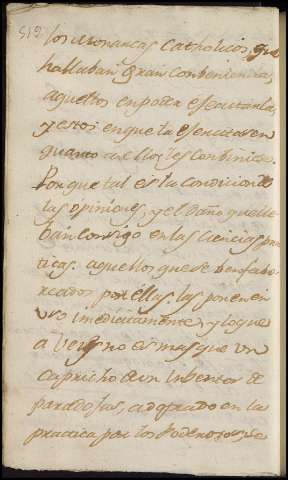 512
los Monarcas Catholicos, que
hallaban gran conbeniencia,
aquellos en poder executarlas,
y estos en que la executasen
quanto a ellos les conbiniese.
Porque tal es la condicion de
las opiniones, y el daño que lle
ban consigo en las ciencias prac
ticas. aquellos que se ven fabo
recidos por ellas, las ponen en
uso imediatamente, y lo que
a veces no es mas que un
capricho de un inbentor de
paradojas, adoptado en la
practica por los Poderosos, se